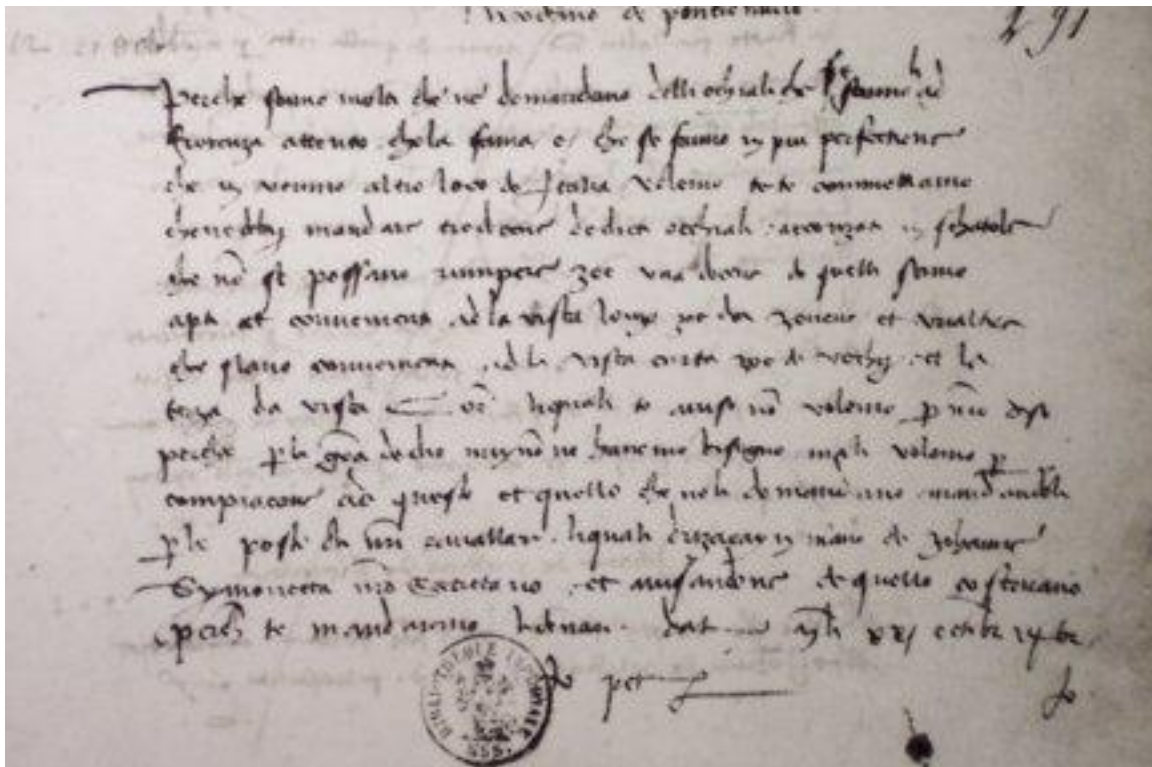 de pontremulo
291
Perche sonno molti che ne domandano delli ochiali che se fanno li ad
Fiorenza attento che la fama e che se fanno in piu perfectione
che in veruno altro loco de Italia volemo et te commettiamo
che ne debbi mandare tre docene de dicti ochiali acconzati in schatole
che nō se possano rumpere zoe una docena de quelli sonno
apti et convenienti ad la vista longa zoe da zovene et unaltra
che siano convenienti ad la vista curta zoe da vechy et la
terza da vista liquali te aviso nō volemo p
perche p la grā de dio nuy nō ne havemo bisogno ma li volemo p
compiacere ad questo et quello che ne li domandano mandandoli
p le poste de nr̄i cavallari liquali drizaray in mano de Zohanne
Symonecta nrō Secretario et avisandone de quello costarano
perche te mandaremo li denari dat xxj octobr 1462
BIBLIOTHEQUE IMPERIALE
MSS.